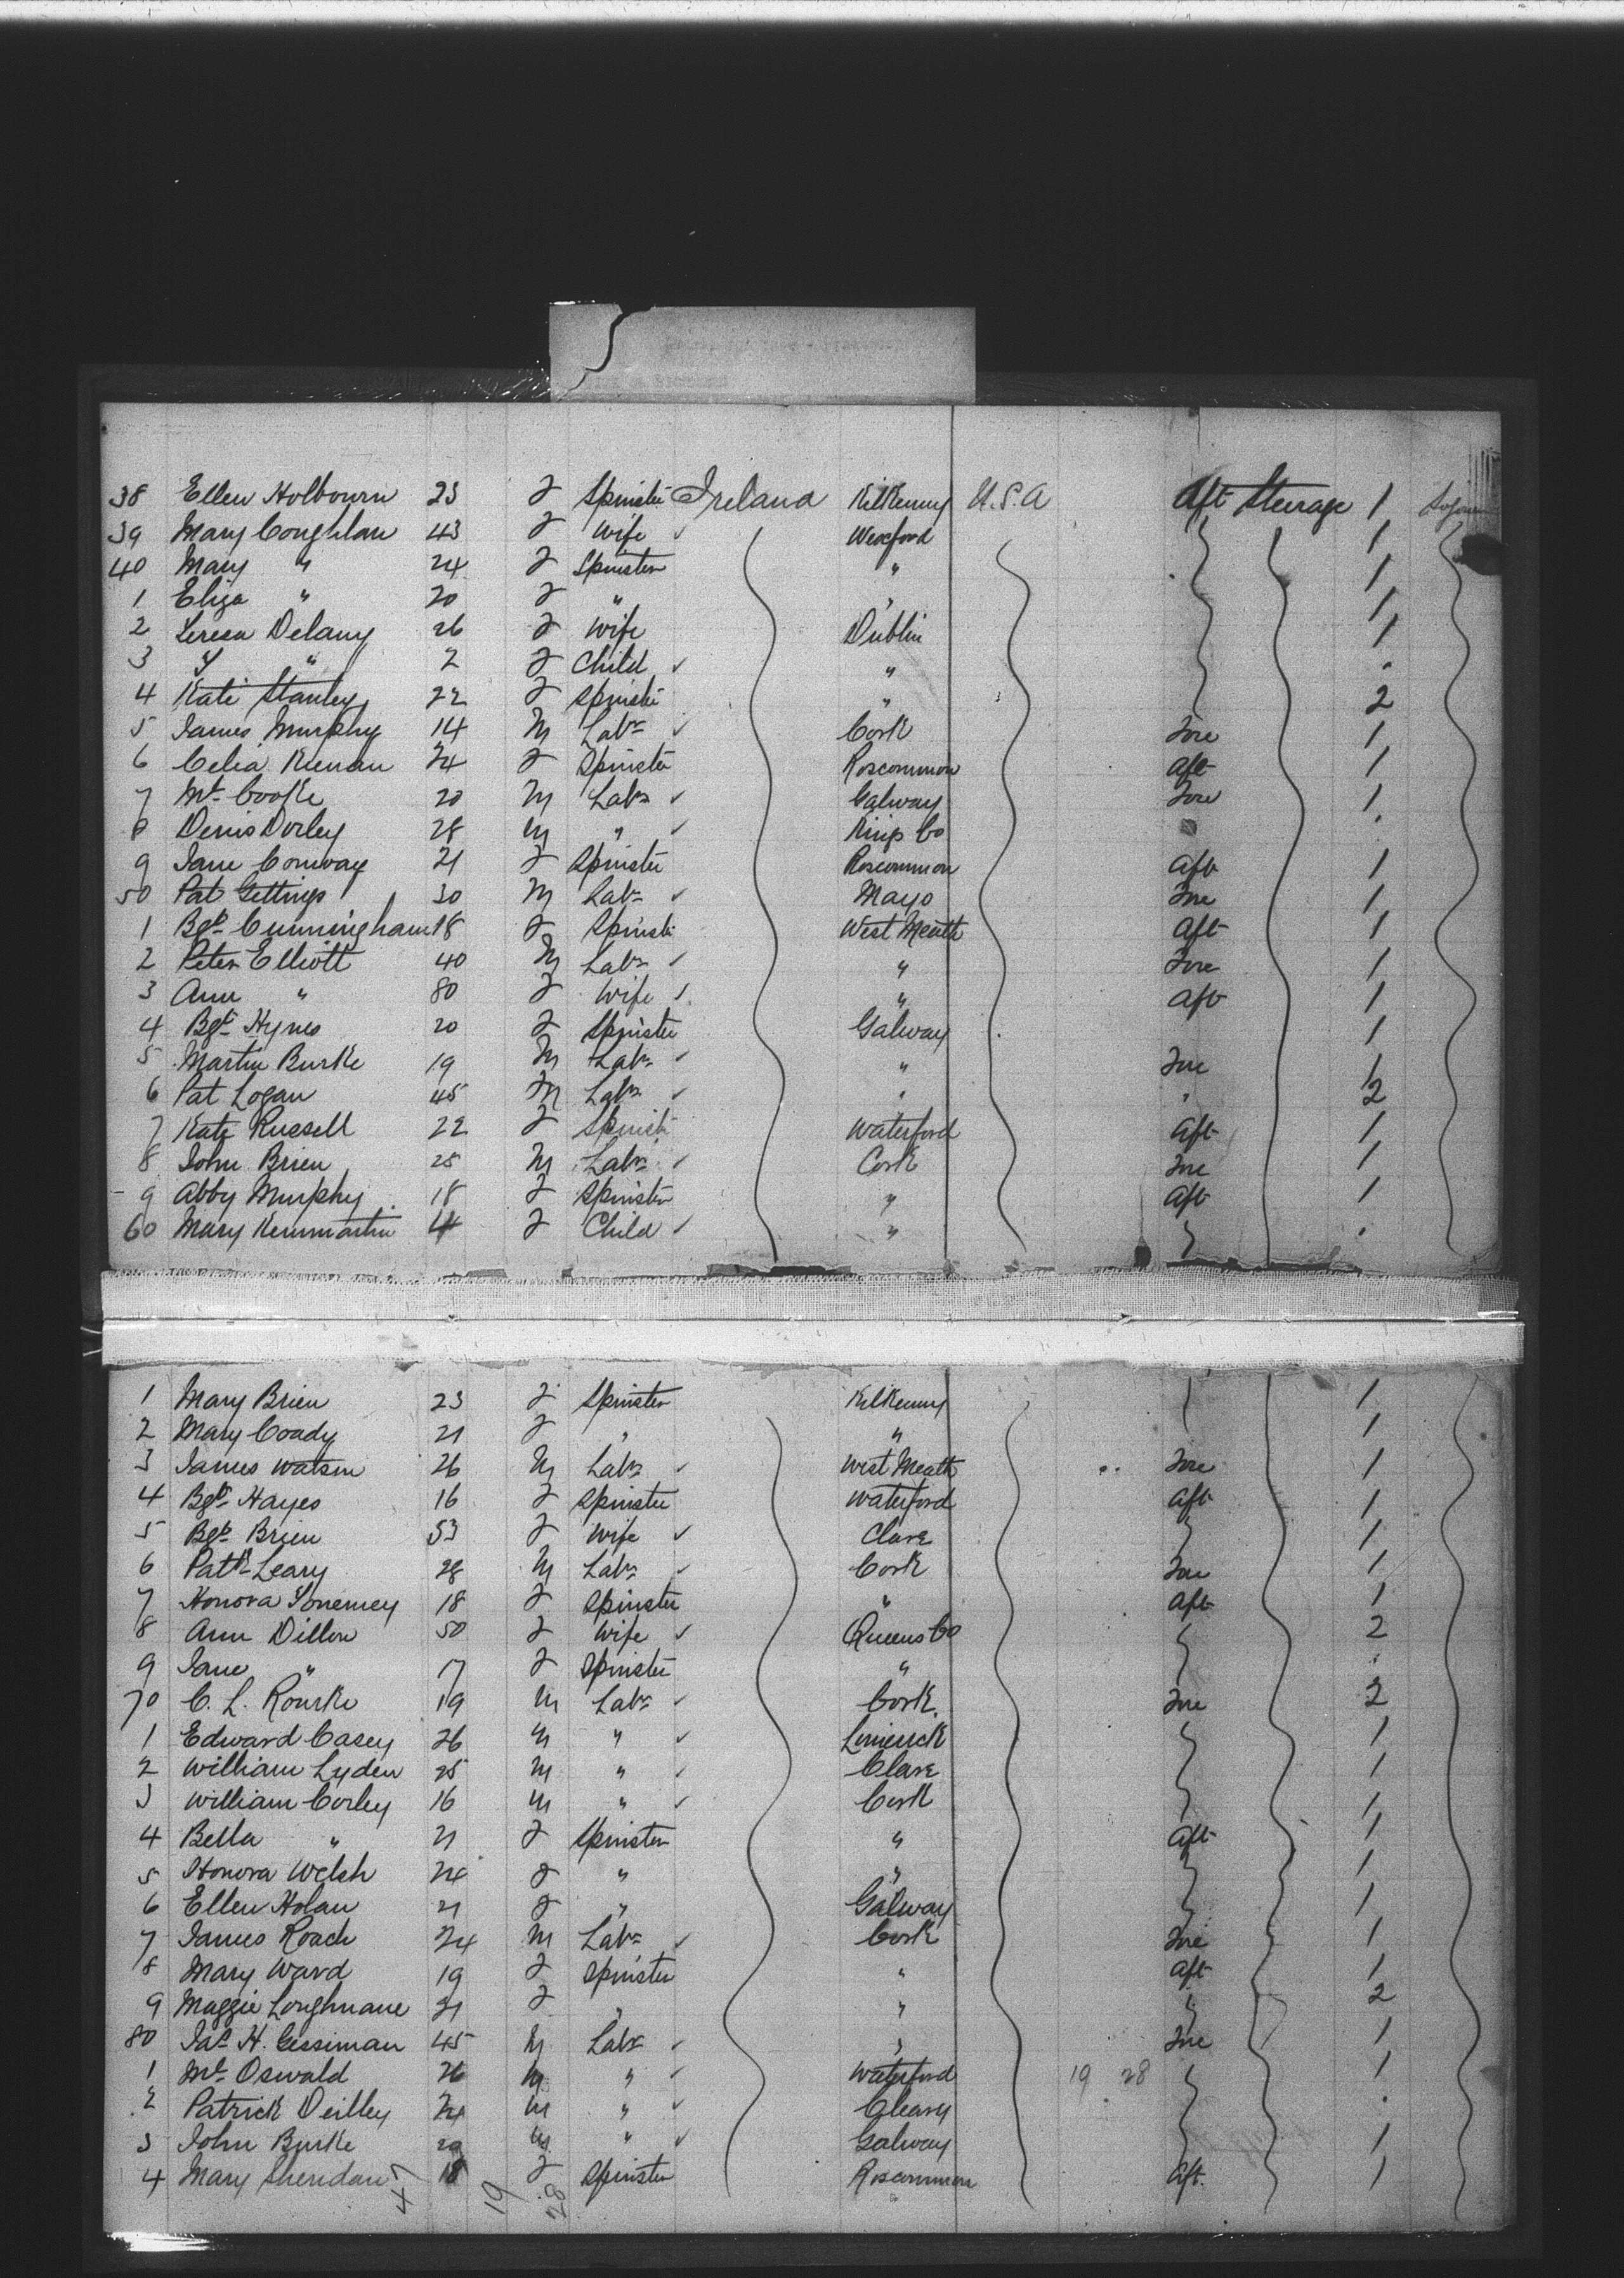 38 Ellen Holbourn 23 F Spinster Ireland Kilkenny U.S.A Aft Steerage 1
39 Mary Coughlan 43 F Wife ✓ Wexford 1
40 Mary " 24 F Spinster " 1
1 Eliza " 20 F " " 1
2 Teresa Delany 26 F Wife Dublin 1
3 T " 2 F Child ✓ " .
4 Kate Stanley 22 F Spinster " 2
5 James Murphy 14 M Labr ✓ Cork Fore 1
6 Celia Kienan 24 F Spinster Roscommon Aft 1
7 Mt Cooke 20 M Labr ✓ Galway Fore 1
8 Denis Dorley 28 M " ✓ Kings Co " .
9 Jane Conway 21 F Spinster Roscommon Aft 1
50 Pat Gettings 30 M Labr ✓ Mayo Fore 1
1 Bgt Cunningham 18 F Spinst West Meath Aft 1
2 Peter Elliott 40 M Labr ✓ " Fore 1
3 Ann " 80 F Wife ✓ " Aft 1
4 Bgt Hynes 20 F Spinster Galway 1
5 Martin Burke 19 M Labr ✓ " Fore 1
6 Pat Logan 45 M Labr ✓ " " 2
7 Kate Russell 22 F Spinst Waterford Aft 1
8 John Brien 25 M Labr ✓ Cork Fore 1
9 Abby Murphy 18 F Spinster " Aft 1
60 Mary Kenmartin 4 F Child ✓ " .
1 Mary Brien 23 F Spinster Kilkenny 1
2 Mary Coady 21 F " " 1
3 James Watson 26 M Labr ✓ West Meath Fore 1
4 Bgt Hayes 16 F Spinster Waterford Aft 1
5 Bgt Brien 53 F Wife ✓ Clare 1
6 Patk Leary 28 M Labr ✓ Cork Fore 1
7 Honora 18 F Spinster " Aft 1
8 Ann Dillon 50 F Wife ✓ Queens Co 2
9 Jane " 17 F Spinster " .
70 C. L. Rourke 19 M Labr ✓ Cork Fore 2
1 Edward Casey 26 M " ✓ Limerick 1
2 William Lyden 25 M " ✓ Clare 1
3 William Corley 16 M " ✓ Cork 1
4 Bella " 21 F Spinster " Aft 1
5 Honora Welsh 24 F " " 1
6 Ellen Holan 21 F " Galway 1
7 James Roach 24 M Labr ✓ Cork Fore 1
8 Mary Ward 19 F Spinster " Aft 1
9 Maggie Loughnane 21 F " " 2
80 Jas H. Gessiman 45 M Labr ✓ " Fore 1
1 Mt Oswald 26 M " ✓ Waterford 19 28 1
2 Patrick Deilley 24 M " ✓ Cleary .
3 John Burke 20 M " ✓ Galway 1
4 Mary Sheridan 18 F Spinster Roscommon Aft. 1
47 19 28